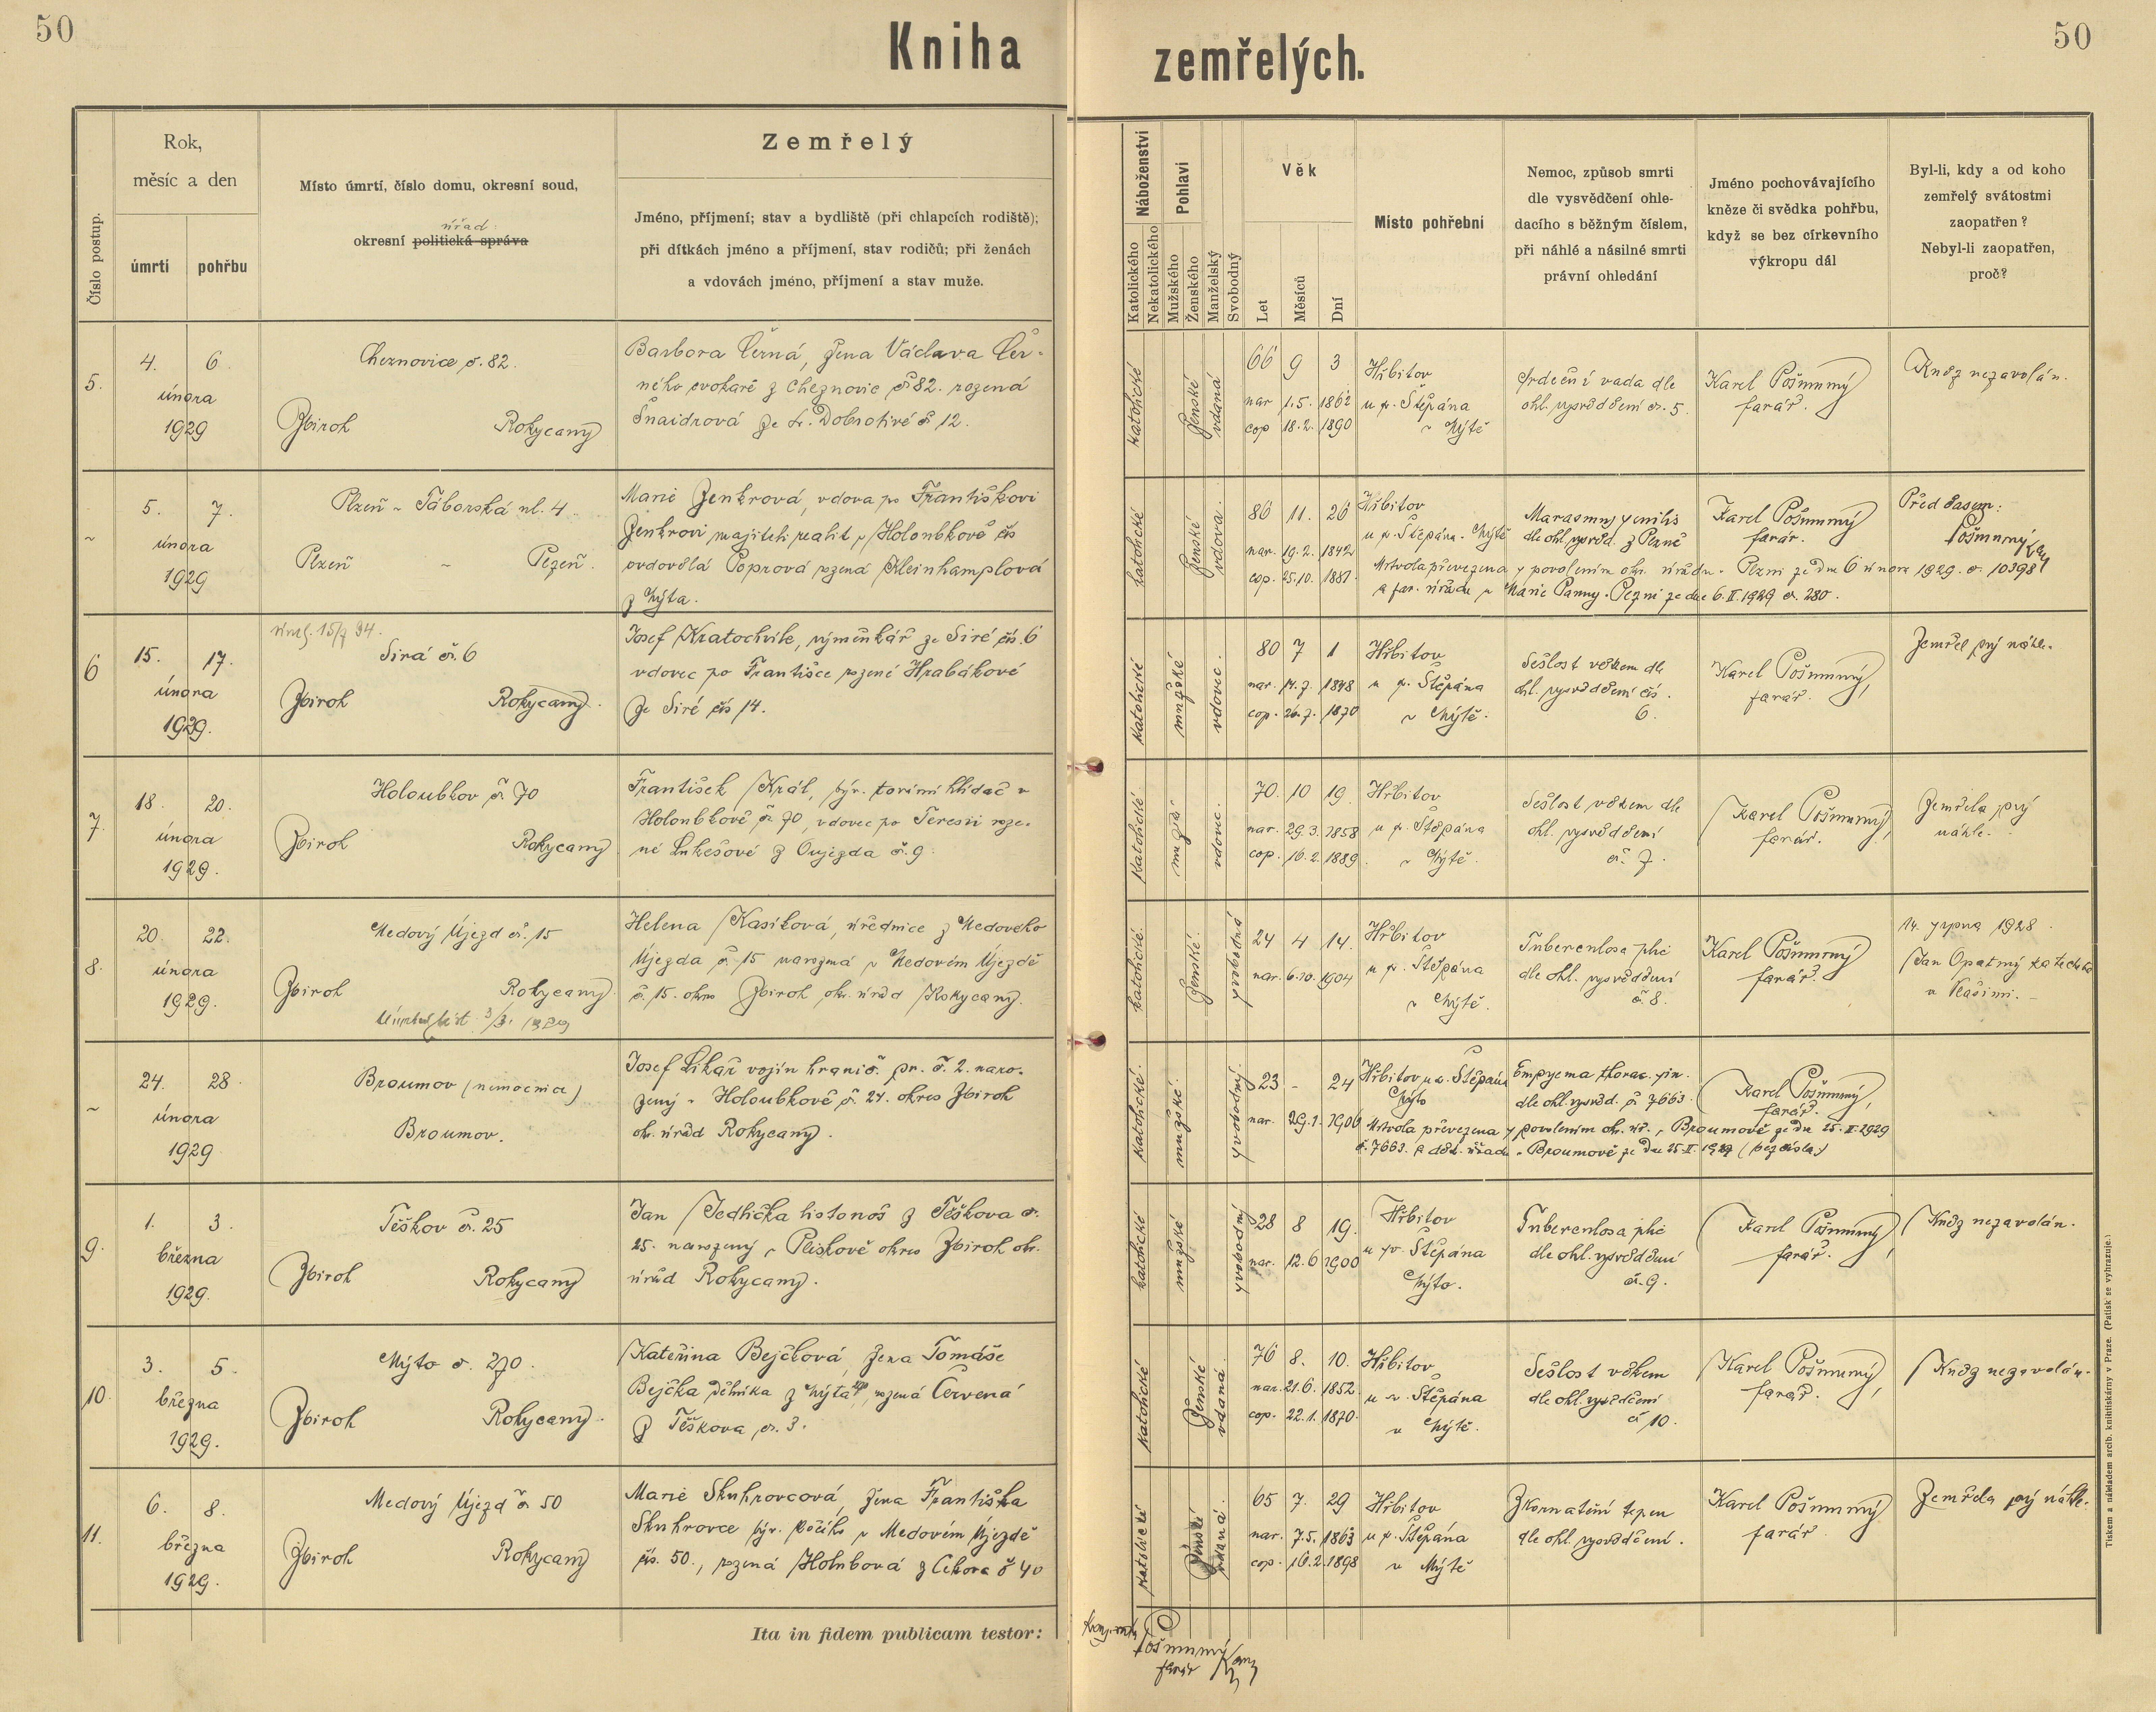 50
Kniha zemřelých.
50
Číslo postup.
Rok,
měsíc a den
úmrtí
pohřbu
Místo úmrtí, číslo domu, okresní soud,
úřad
okresní politická správa
Zemřelý
Jméno, příjmení; stav a bydliště (při chlapcích rodiště);
při dítkách jméno a příjmení, stav rodičů; při ženách
a vdovách jméno, příjmení a stav muže.
Náboženství
Katolického
Nekatolického
Pohlaví
Mužského
Ženského
Manželský
Svobodný
Věk
Let
Měsíců
Dní
Místo pohřební
Nemoc, způsob smrti
dle vysvědčení ohle-
dacího s běžným číslem,
při náhlé a násilné smrti
právní ohledání
Jméno pochovávajícího
kněze či svědka pohřbu,
když se bez církevního
výkropu dál
Byl-li, kdy a od koho
zemřelý svátostmi
zaopatřen?
Nebyl-li zaopatřen,
proč?
5.
4. 6.
února
1929
Cheznovice č. 82.
Zbiroh Rokycany
Barbora Černá, žena Václava Čer-
ného cvokaře z Cheznovic č 82. rozená
Šnaidrová ze sv. Dobrotivé č 12.
katolické
ženské
vdaná
66 9 3
nar 1.5. 1862
cop 18.2. 1890
Hřbitov
u sv. Štěpána
v Mýtě
Srdeční vada dle
ohl. vysvědčení č. 5.
Karel Pošmurný
farář.
Kněz nezavolán.
5. 7.
února
1929
Plzeň - Táborská ul. 4
Plzeň - Plzeň.
Marie Zenkrová, vdova po Františkovi
Zenkrovi majiteli realit v Holoubkově čís
ovdovělá Poprová rozená Kleinhamplová
z Mýta.
katolické
ženské
vdova.
86 11. 26
nar. 19.2. 1842
cop. 25.10. 1881.
Hřbitov
u sv. Štěpána. Mýtě
Marasmus senilis
dle ohl. vysvěd. z Plzně
Karel Pošmurný
farář.
Před časem:
Pošmurný
Mrtvola převezena s povolením okr. úřadu v Plzni ze dne 6 února 1929. č. 10398
a far. úřadu u Marie Panny v Plzni ze dne 6.II.1929 č. 280.
6
15. 17.
února
1929.
Sirá č. 6
Zbiroh Rokycany.
Josef Kratochvíle, výměnkář ze Siré čís. 6
vdovec po Františce rozené Hrabákové
ze Siré čís 14.
katolické
mužské
vdovec.
80 7 1
nar. 14.7. 1848
cop. 26.7. 1870
Hřbitov
u sv. Štěpána
v Mýtě.
Sešlost věkem dle
ohl. vysvědčení čís.
6.
Karel Pošmurný,
farář.
Zemřel prý náhle.
7.
18. 20.
února
1929.
Holoubkov č. 70
Zbiroh Rokycany
František Král, býv. tovární hlídač v
Holoubkově č. 70, vdovec po Terezii roze-
né Lukešové z Oujezda č. 9.
katolické
mužské
vdovec.
70. 10 19.
nar. 29.3. 1858
cop. 16.2. 1889.
Hřbitov
u sv. Štěpána
v Mýtě.
Sešlost věkem dle
ohl. vysvědčení
č. 7.
Karel Pošmurný,
farář.
Zemřela prý
náhle.
8.
20 22.
února
1929.
Medový Újezd č. 15
Zbiroh Rokycany
Helena Kasíková, úřednice z Medového
Újezda č. 15 narozená v Medovém Újezdě
č. 15. okres Zbiroh okr. úřad Rokycany.
katolické.
ženské.
svobodná
24 4 14.
nar. 6.10. 1904
Hřbitov
u sv. Štěpána
v Mýtě.
Tuberculosa plic
dle ohl. vysvědčení
č. 8.
Karel Pošmurný
farář.
14. srpna 1928.
Jan Opatrný katecheta
24. 28.
února
1929
Broumov (nemocnice)
Broumov.
Josef Likař vojín hranič. pr. č. 2. naro-
zený v Holoubkově č. 24. okres Zbiroh
okr. úřad Rokycany.
katolické.
mužské.
svobodný.
23 - 24
nar. 29.1. 1906
Hřbitov u sv. Štěpána
Mýto
Empyema thorac. sin.
dle ohl. vysvěd. č 7663.
Karel Pošmurný,
farář.
Mrtvola převezena s povolením okr. úř. v Broumově ze dne 25.II.1929
č. 7663. a děk. úřadu v Broumově ze dne 25.II.1929 (bez čísla)
9.
1. 3.
března
1929.
Těškov č. 25
Zbiroh Rokycany
Jan Jedlička listonoš z Těškova č.
25. narozený v Plískově okres Zbiroh okr.
úřad Rokycany.
katolické
mužské
svobodný
28 8 19.
nar. 12.6 1900
Hřbitov
u sv. Štěpána
Mýto.
Tuberculosa plic
dle ohl. vysvědčení
č. 9.
Karel Pošmurný,
farář.
Kněz nezavolán.
10.
3. 5.
března
1929.
Mýto č. 270.
Zbiroh Rokycany.
Kateřina Bejčková, žena Tomáše
Bejčka dělníka z Mýta 270, rozená Červená
z Těškova č. 3.
katolické
ženské
vdaná.
76 8. 10.
nar. 21.6. 1852.
cop. 22.1. 1870.
Hřbitov
u sv. Štěpána
v Mýtě.
Sešlost věkem
dle ohl. vysvědčení
č 10.
Karel Pošmurný,
farář.
Kněz nezavolán.
11.
6. 8.
března
1929.
Medový Újezd č. 50
Zbiroh Rokycany
Marie Skuhrovcová, žena Františka
Skuhrovce býv. kočího v Medovém Újezdě
čís. 50., rozená Holubová z Cekova č 40
katolické
ženské
vdaná.
65 7. 29
nar. 7.5. 1863
cop. 16.2. 1898
Hřbitov
u sv. Štěpána
v Mýtě
Zkornatění tepen
dle ohl. vysvědčení.
Karel Pošmurný
farář.
Zemřela prý náhle.
Ita in fidem publicam testor:
Pošmurný
farář
Tiskem a nákladem arcib. knihtiskárny v Praze. (Patisk se vyhrazuje.)